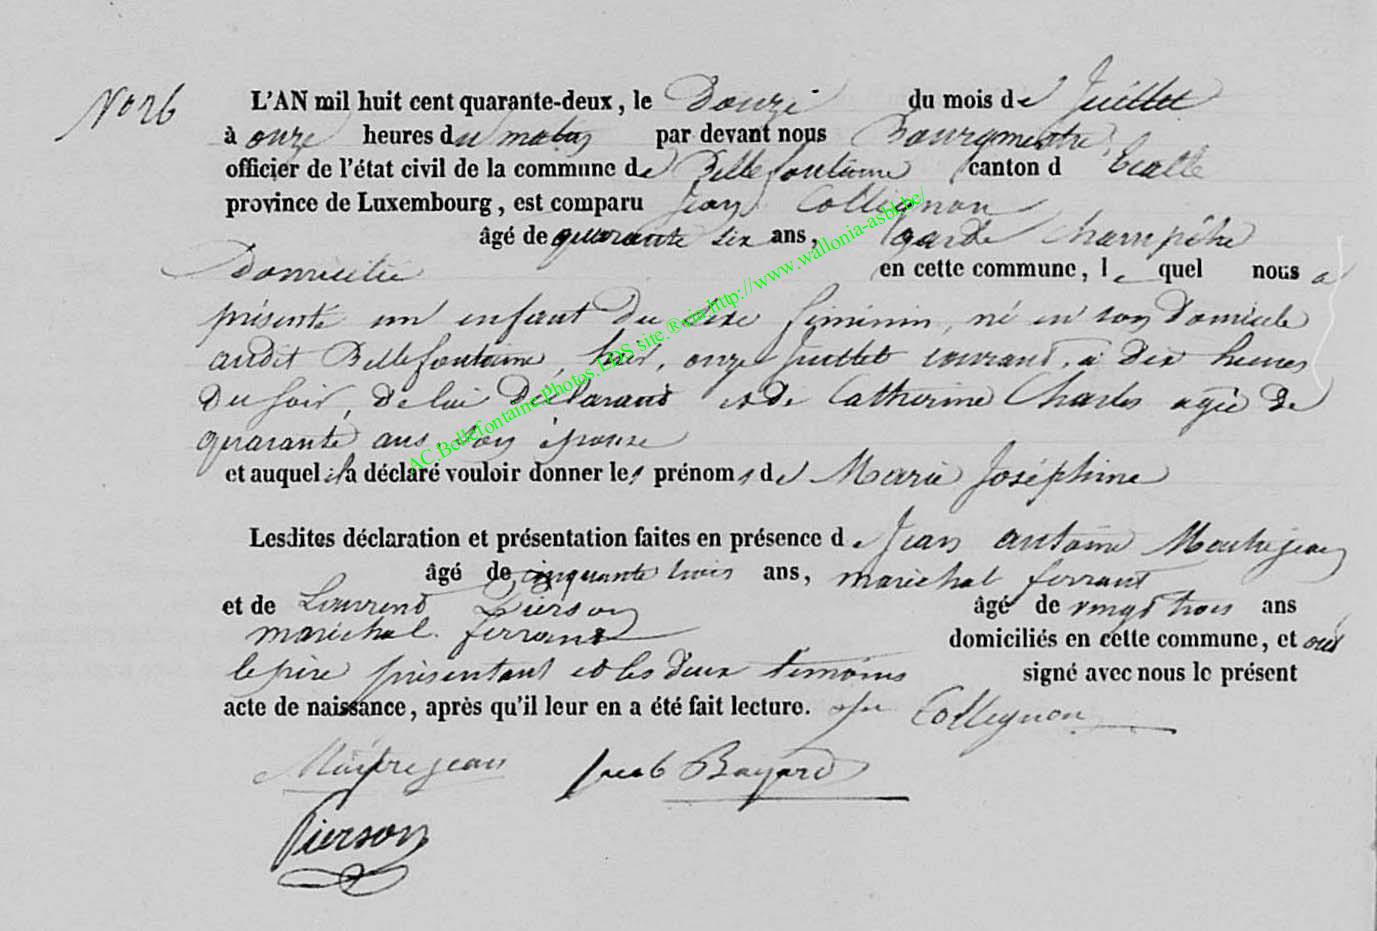 No 26
L'AN mil huit cent quarante-deux, le Douze du mois de Juillet
à onze heures du matin par devant nous Bourgmestre
officier de l'état civil de la commune de Bellefontaine canton d'Etalle
province de Luxembourg, est comparu Jean Collignon
âgé de quarante six ans, garde champêtre
Domicilié en cette commune, lequel nous a
présenté un enfant du sexe féminin, né en son Domicile
audit Bellefontaine, hier, onze Juillet courant, à dix heures
Du soir, De lui Déclarant et de Catherine Charles agée De
quarante ans son épouse
et auquel il a déclaré vouloir donner les prénoms de Marie Joséphine
Lesdites déclaration et présentation faites en présence de Jean antoine Maitrejean
âgé de cinquante trois ans, maréchal ferrant
et de Laurend Pierson âgé de vingt trois ans
maréchal ferrant domiciliés en cette commune, et ont
le père présentant et les deux témoins signé avec nous le présent
acte de naissance, après qu'il leur en a été fait lecture. Collignon
Maitrejean Jacob Bayard
Pierson
AC.Bellefontaine.Photos.LDS site.®.via.http://www.wallonia-asbl.be/